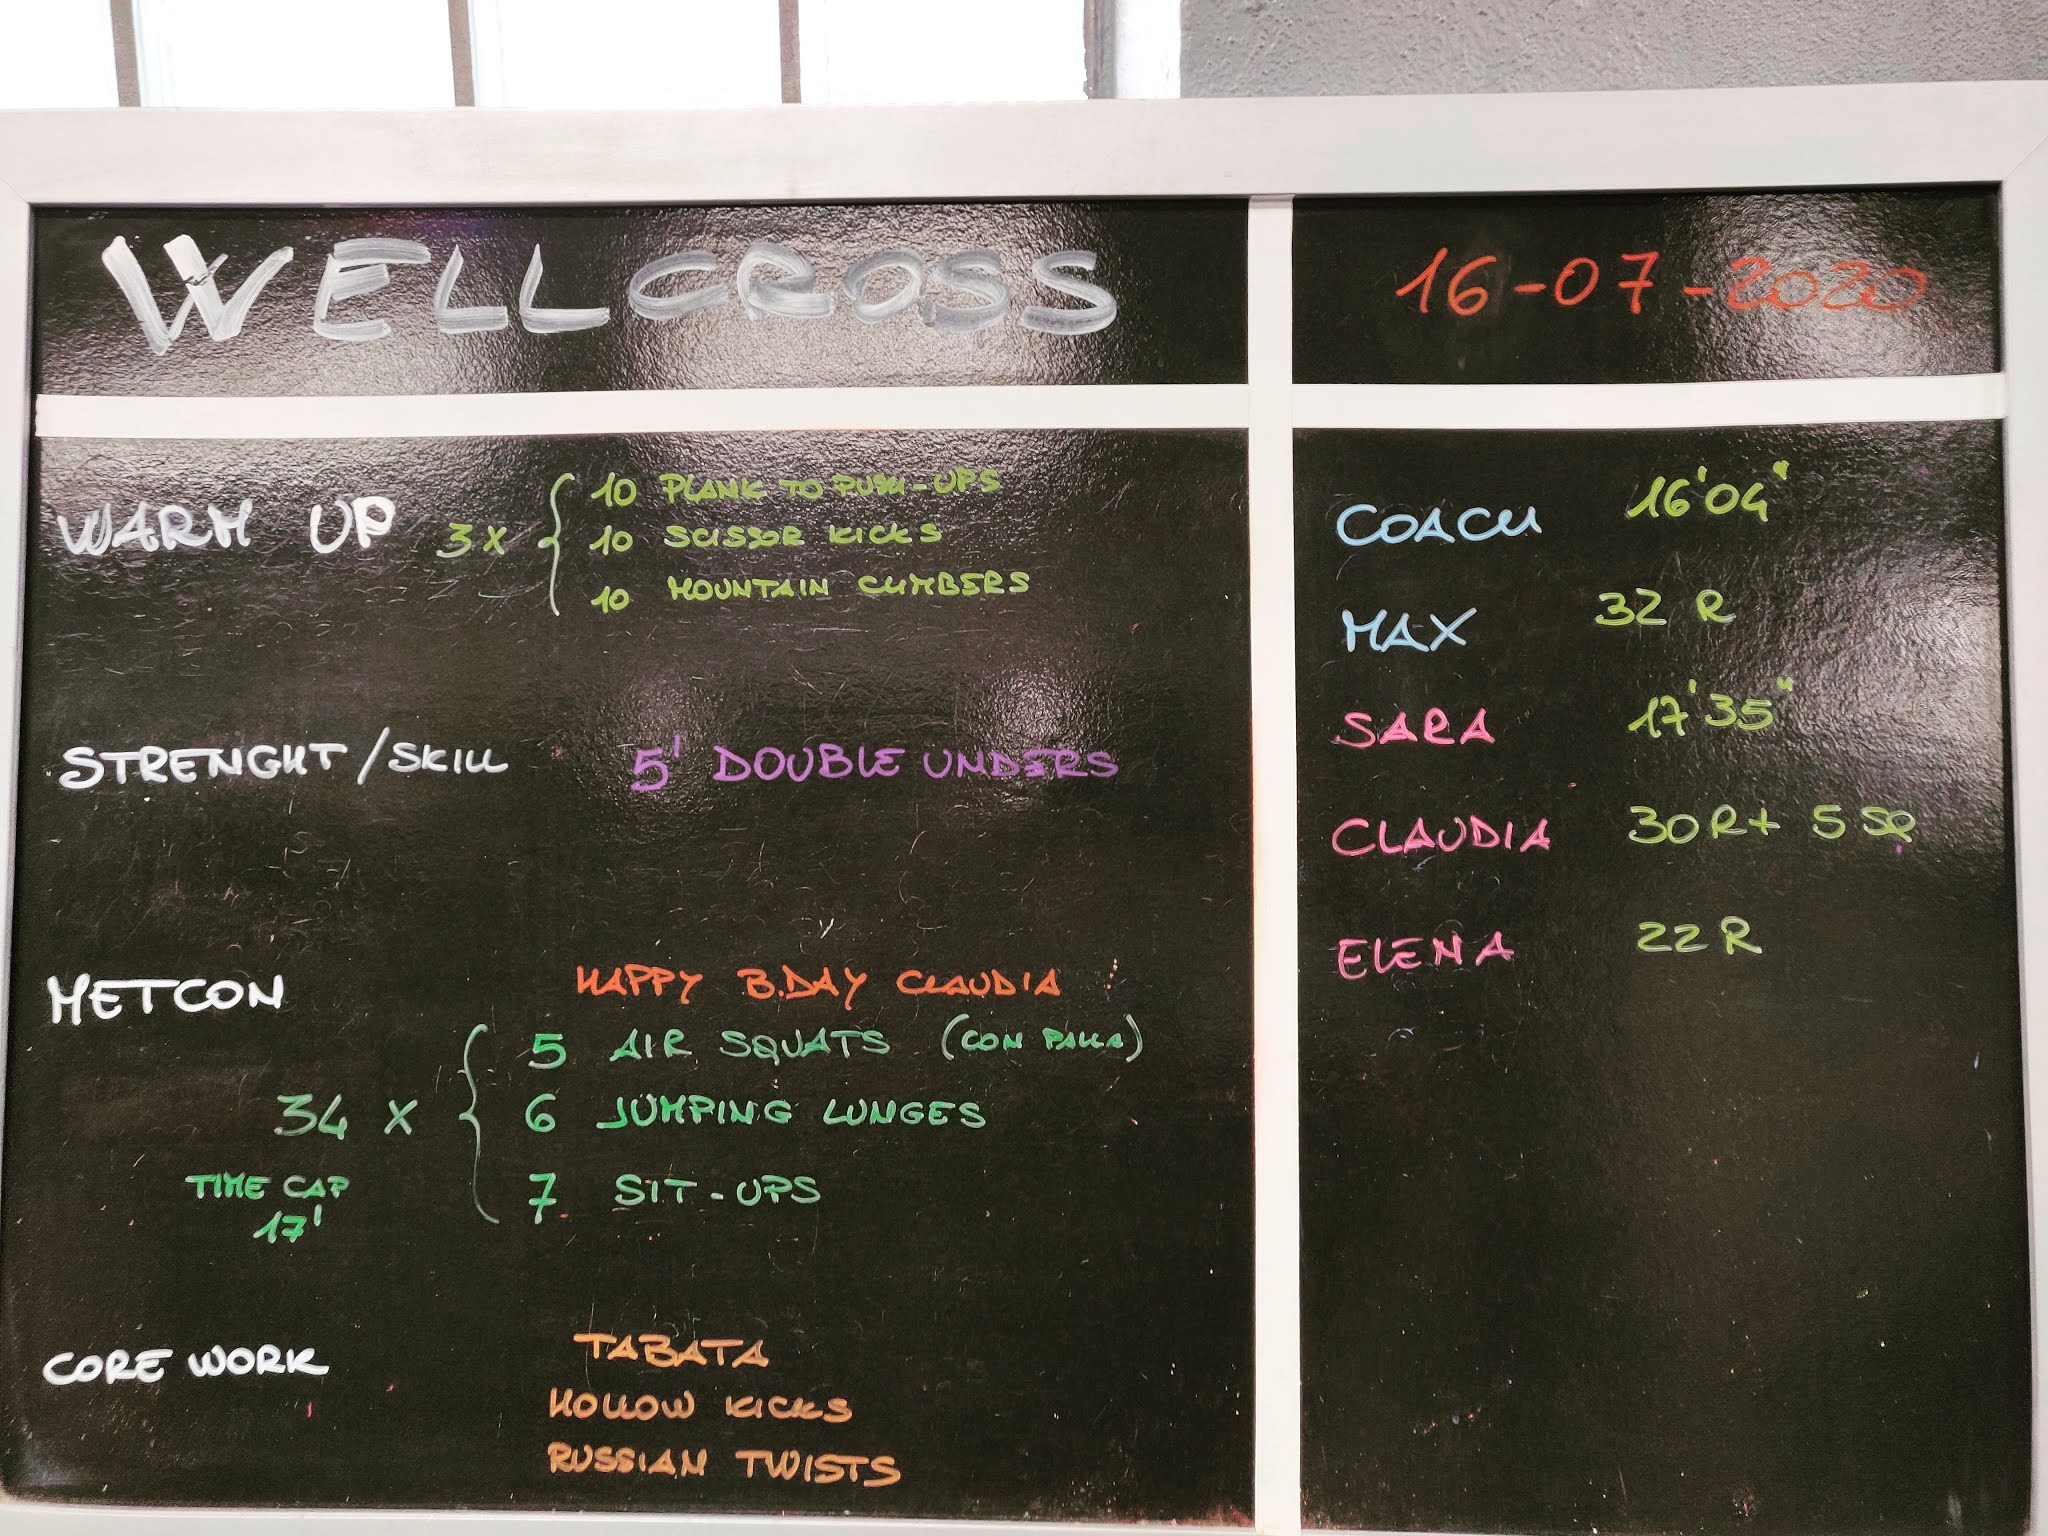 WELLCROSS
16-07-2020
WARM UP 3 X { 10 PLANK TO PUSH-UPS
10 SCISSOR KICKS
10 MOUNTAIN CLIMBERS
STRENGHT/SKILL 5' DOUBLE UNDERS
METCON HAPPY B.DAY CLAUDIA !
5 AIR SQUATS (CON PALLA)
34 X { 6 JUMPING LUNGES
TIME CAP 7 SIT-UPS
17'
CORE WORK TABATA
HOLLOW KICKS
RUSSIAN TWISTS
COACH 16'04"
MAX 32 R
SARA 17'35"
CLAUDIA 30R+ 5 SQ
ELENA 22 R